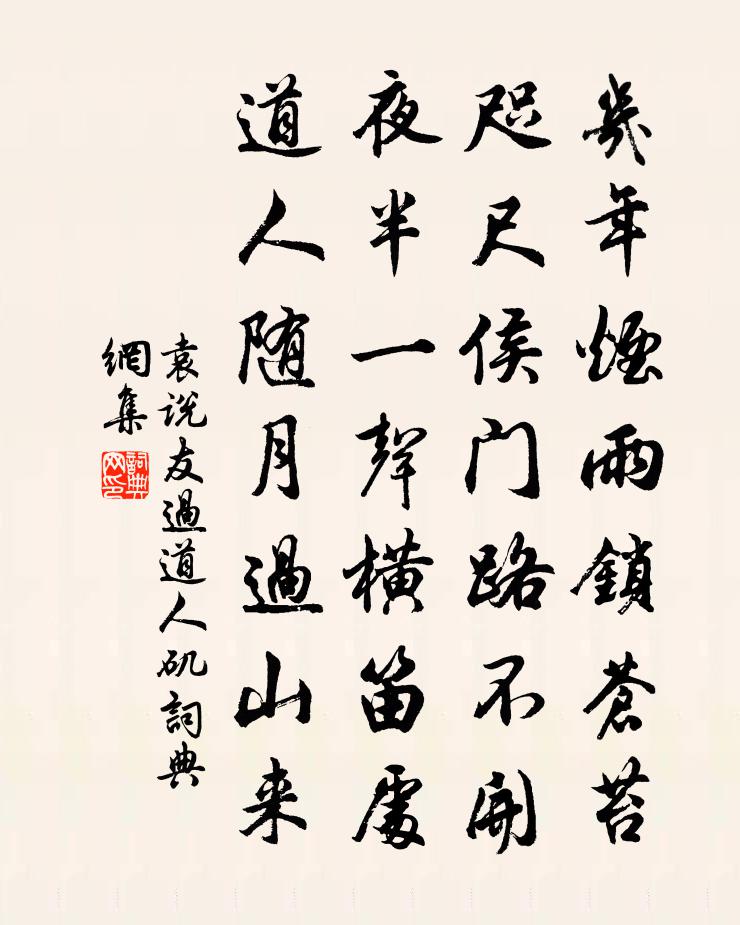 幾年煙雨鎖蒼苔
咫尺侯門路不開
夜半一聲橫笛處
道人随月過山来
袁説友過道人矶詞典
網集
詞典
网印